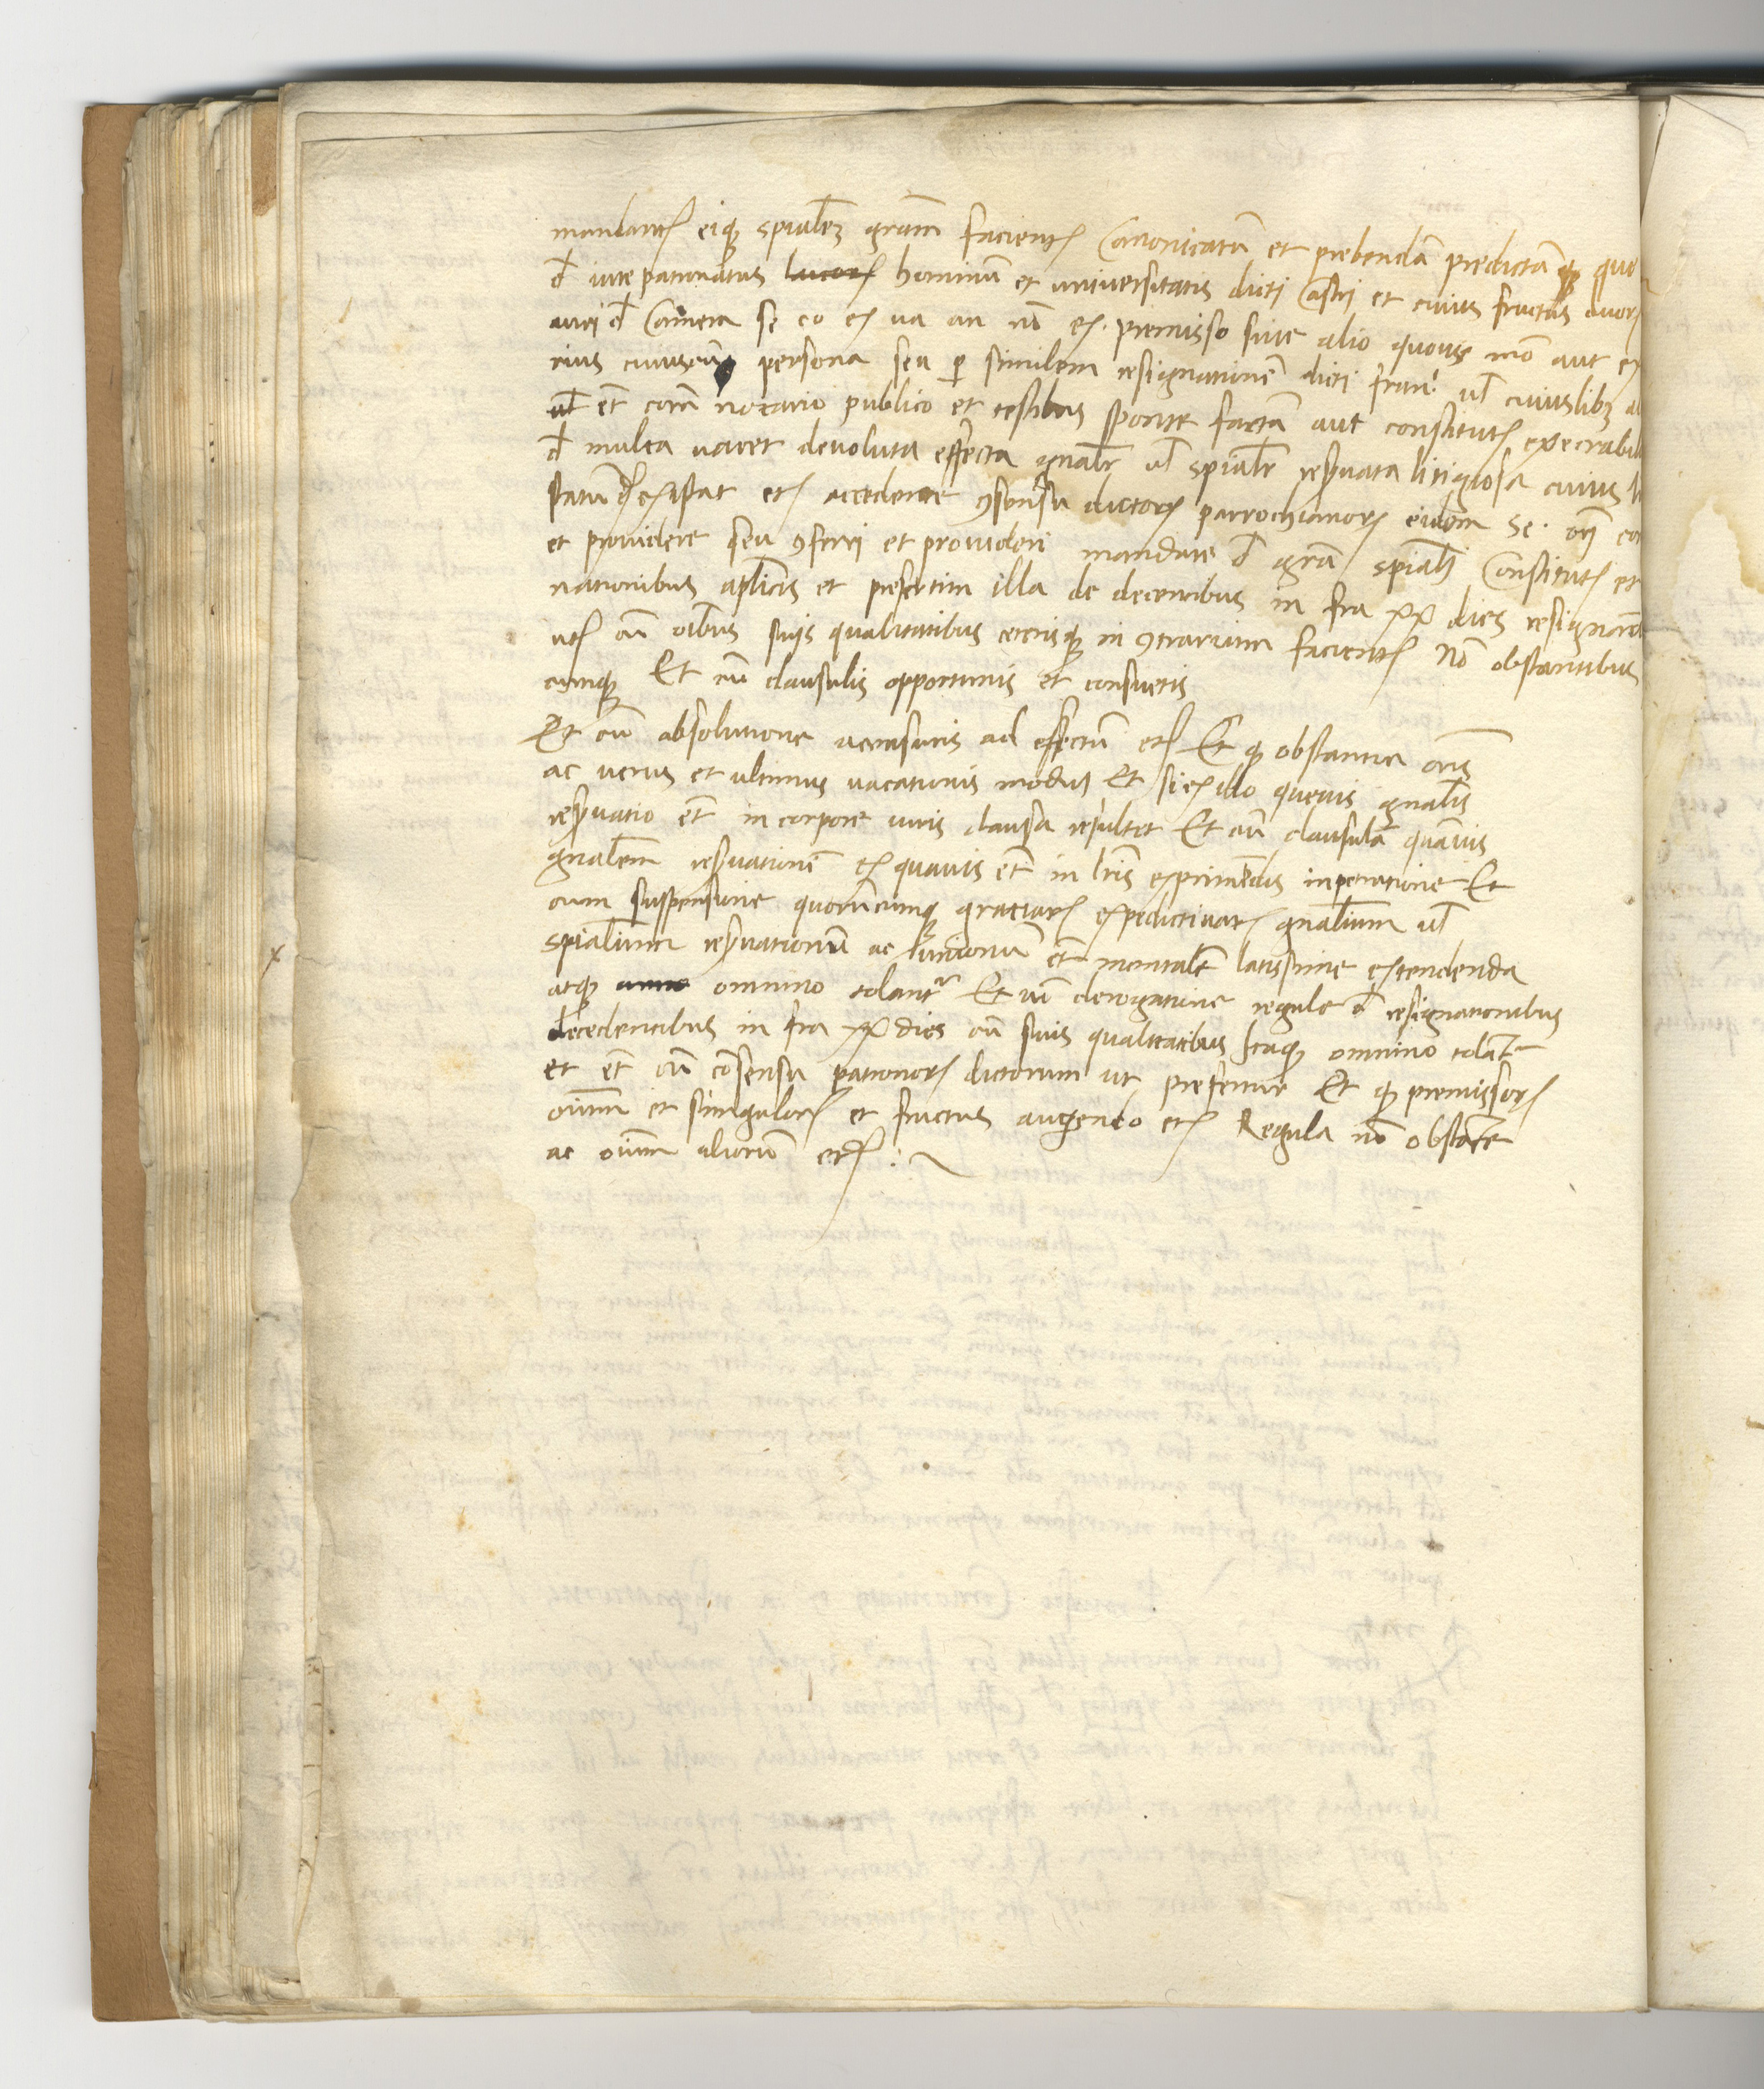 mandant eiq spialem gram facient Canonicatu et prebenda predicta que
d iure patronatus hominu et universitatis dicti Castri et cuius fructus duor
auri d Camera se co ex va an no ex premisso sive alio quovis mo aut ex
rius cuiuscu persona seu p similem resignatione dicti fran ul cuiuslibz
ul et cora notario publico et testibus sponte facta aut constitut execrabil
d multa vacet devoluta effecta gnalr ul spialr reservata litigiosa cuius li
statu existat etc accedente consensu dictor parrochianor eidem Se. orj
et providere seu conferri et provideri mandare d gra spiali Constitut et
nationibus aplicis et presertim illa de decentibus in fra xx dies resignant
cu oibus suis qualitatibus ceterisq in contrarium facient No obstantibus
cumq Et cu clausulis opportunis et consuetis
Et cu absolutione a censuris ad effectu etc Et q obstantia ois
ac verus et ultimus vacationis modus Et si ex illo quevis gnalis
reservatio et in corpore iuris clausa resultet Et cu clausula quavis
gnalem reservatione ex quavis et in lris exprimendis inpetratione Et
cum suspensione quorucumq gratiar expectivar gnalium ul
spialium reservationu ac unionu et mentale latissime extendenda
atq omnino tolant Et cu derogatione regule d resignationibus
decedentibus in fra xx dies cu suis qualitatibus Itaq omnino tolat
et et cu cosensu patronor dictorum ut prefertur Et q premissor
oium et singulor et fructus augendo etc Regula no obstate
ac oium alioru etc